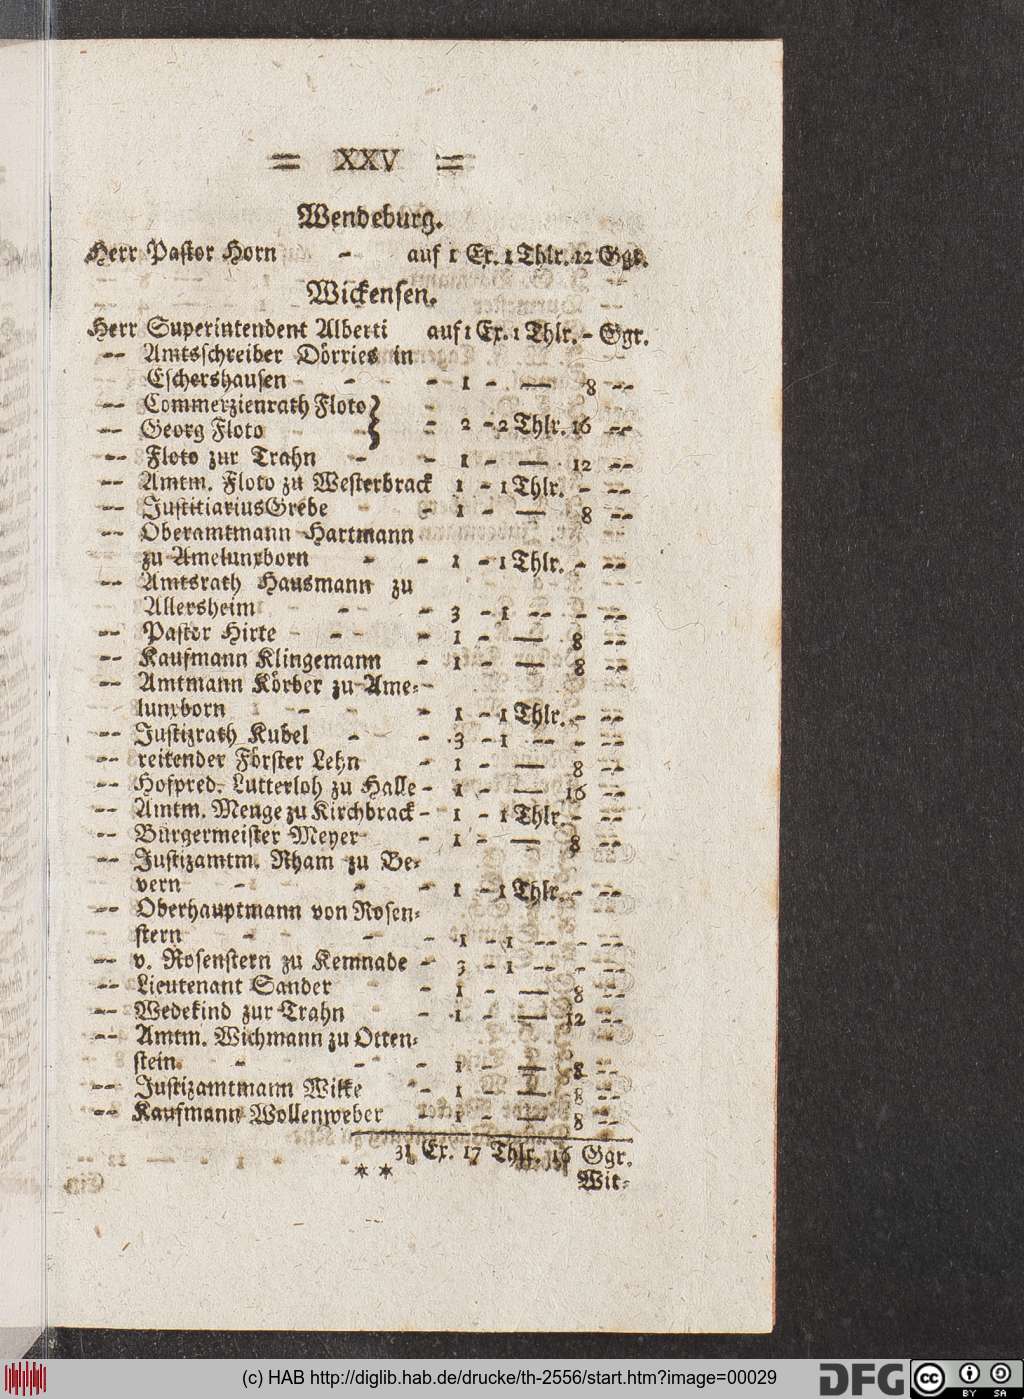 = XXV =
Wendeburg.
Herr Pastor Horn - auf 1 Ex. 1 Thlr. 12 Ggr.
Wickensen.
Herr Superintendent Alberti auf 1 Ex. 1 Thlr. - Ggr.
-- Amtsschreiber Dörries in
Eschershausen - - 1 - — 8 --
-- Commerzienrath Floto }
-- Georg Floto } - 2 - 2 Thlr. 16 --
-- Floto zur Trahn - - 1 - — 12 --
-- Amtm. Floto zu Westerbrack 1 - 1 Thlr. - --
-- Justitiarius Grebe - 1 - — 8 --
-- Oberamtmann Hartmann
zu Amelunxborn - - 1 - 1 Thlr. - --
-- Amtsrath Hausmann zu
Allersheim - - 3 - 1 -- - --
-- Pastor Hirte - - 1 - — 8 --
-- Kaufmann Klingemann - 1 - — 8 --
-- Amtmann Körber zu Ame-
lunxborn - - 1 - 1 Thlr. - --
-- Justizrath Kubel - - 3 - 1 -- - --
-- reitender Förster Lehn - 1 - — 8 --
-- Hofpred. Lutterloh zu Halle - 1 - — 16 --
-- Amtm. Menge zu Kirchbrack - 1 - 1 Thlr. - --
-- Bürgermeister Meyer - 1 - — 8 --
-- Justizamtm. Rham zu Be-
vern - - - 1 - 1 Thlr. - --
-- Oberhauptmann von Rosen-
stern - - - 1 - 1 -- - --
-- v. Rosenstern zu Kemnade - 3 - 1 -- - --
-- Lieutenant Sander - 1 - — 8 --
-- Wedekind zur Trahn - 1 - — 12 --
-- Amtm. Wichmann zu Otten-
stein - - - 1 - — 8 --
-- Justizamtmann Witke - 1 - — 8 --
-- Kaufmann Wollenweber 1 - — 8 --
31 Ex. 17 Thlr. 16 Ggr.
* * Wit-
(c) HAB http://diglib.hab.de/drucke/th-2556/start.htm?image=00029
DFG cc BY SA